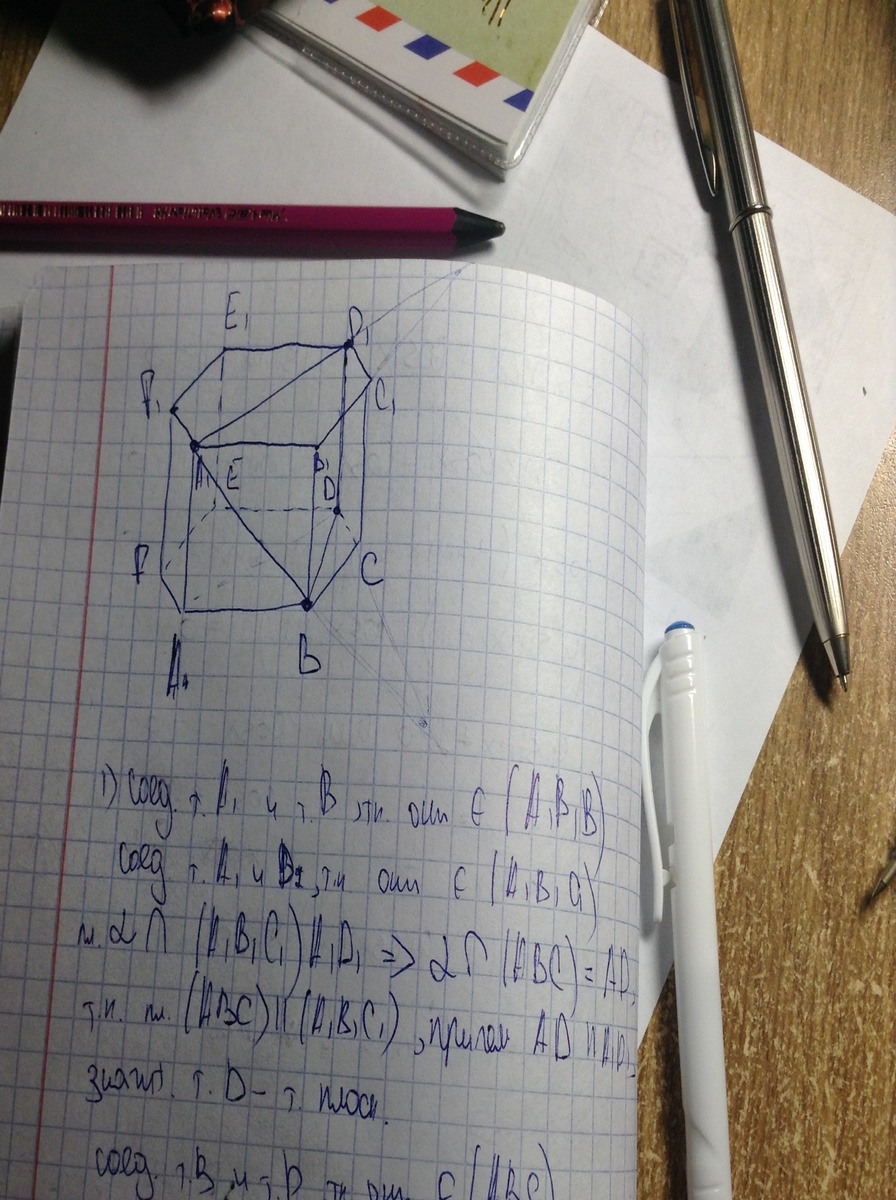 E₁
D₁
F₁
C₁
A₁
E
B₁
D
F
C
A
B
1) Соед. т. A₁ и т. B, т.к. они ∈ (A₁B₁B)
соед т. A₁ и D₁, т.к они ∈ (A₁B₁C₁)
пл. α ∩ (A₁B₁C₁) A₁D₁ => α ∩ (ABC) = AD,
т.к. пл. (ABC) || (A₁B₁C₁), причем AD || A₁D₁
значит. т. D – т. плоск.
соед. т. B и т. D т.к они ∈ (ABC)